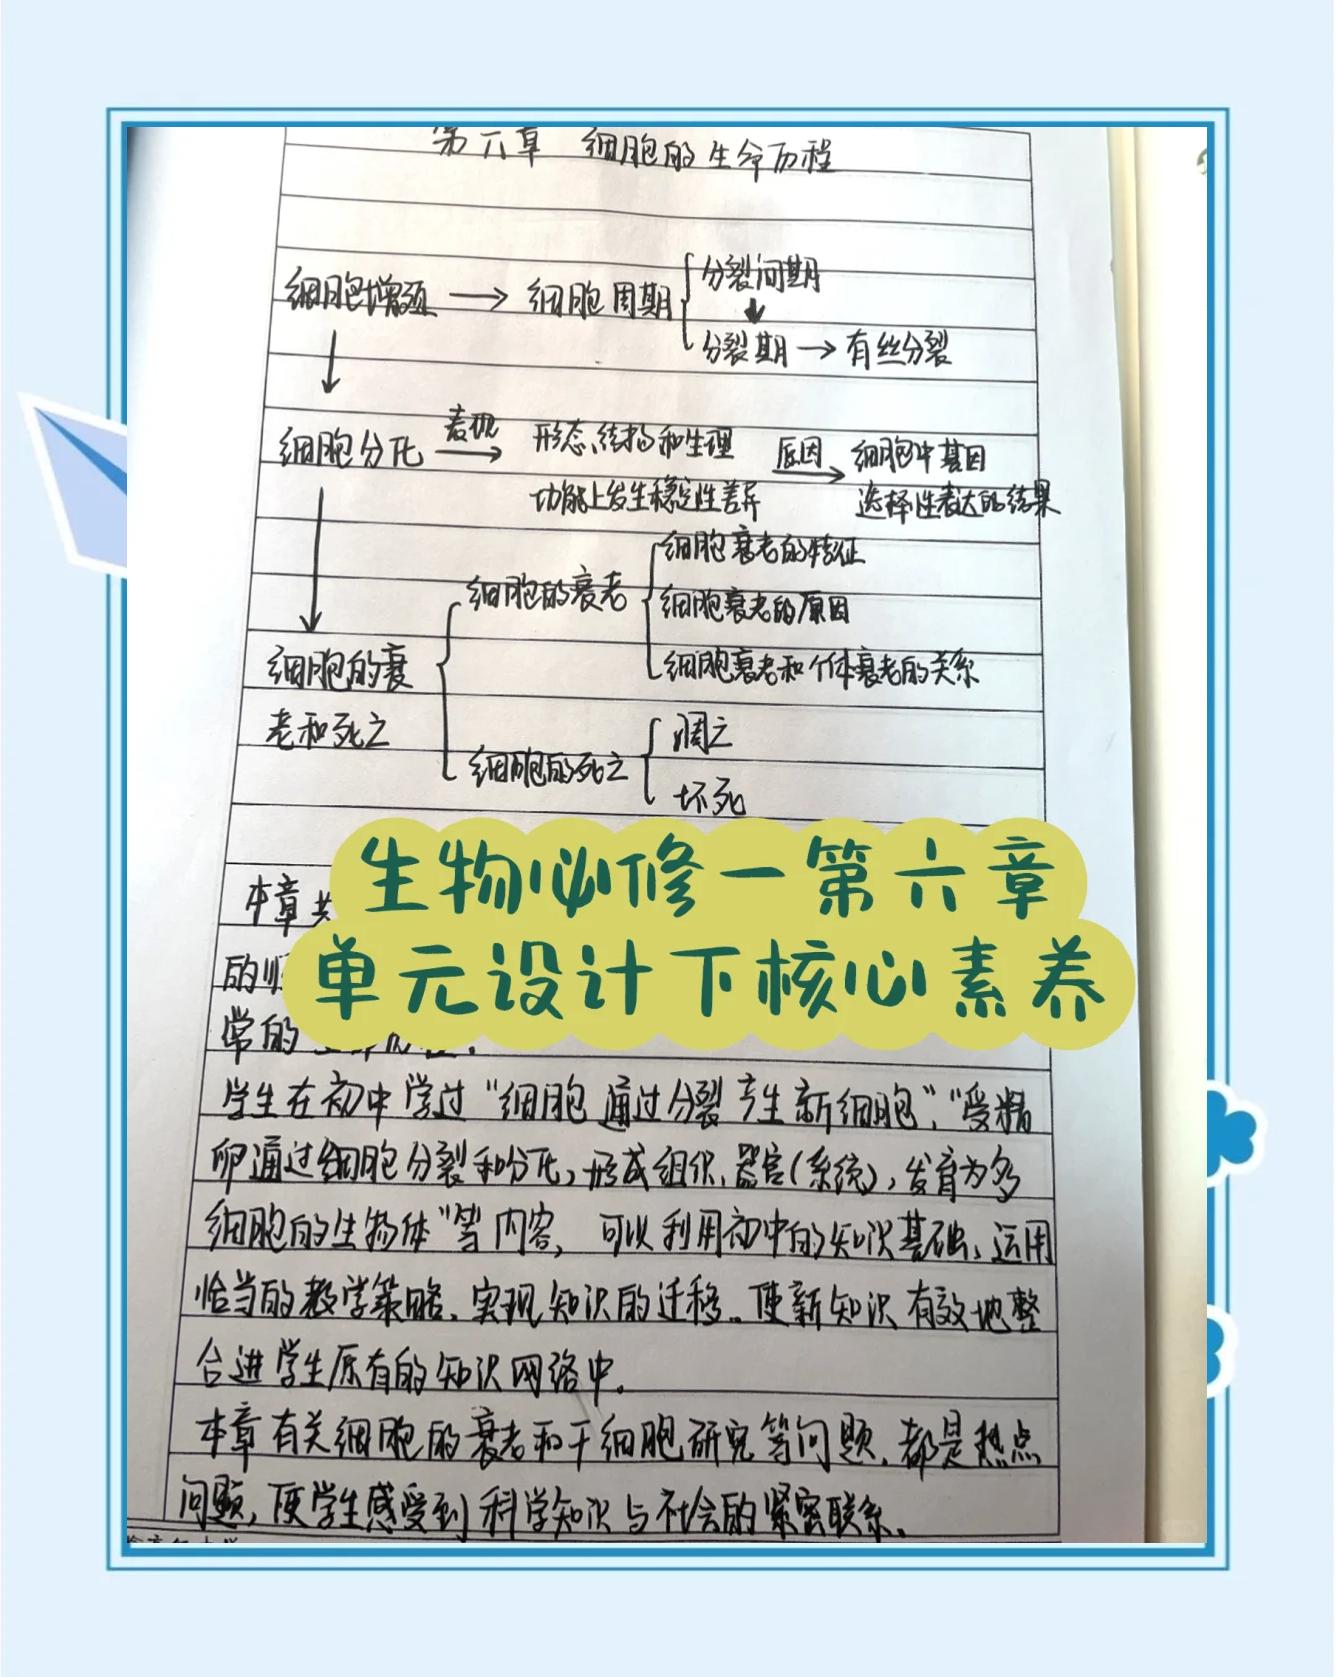 第六章 细胞的生命历程
细胞增殖 → 细胞周期 { 分裂间期
↓
分裂期 → 有丝分裂
↓
细胞分化 表现→ 形态、结构和生理 原因→ 细胞中基因
功能上发生稳定性差异 选择性表达的结果
↓
细胞衰老的特征
细胞的衰老 { 细胞衰老的原因
细胞的衰 { 细胞衰老和个体衰老的关系
老和死亡 凋亡
细胞的死亡 {
坏死
生物必修一第六章
单元设计下核心素养
本章共
的顺
常的
学生在初中学过“细胞通过分裂产生新细胞”,“受精
卵通过细胞分裂和分化,形成组织、器官(系统),发育为多
细胞的生物体”等内容,可以利用初中的知识基础、运用
恰当的教学策略、实现知识的迁移。使新知识有效地整
合进学生原有的知识网络中。
本章有关细胞的衰老和干细胞研究等问题、都是热点
问题,使学生感受到科学知识与社会的紧密联系。